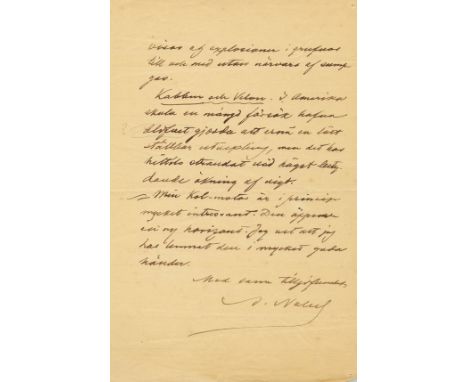 visas af explosioner i grufvor
till och med utan närvaro af sump
gas.
Kabbur och Velou. I Amerika
skola en mängd försök hafva
blifvit gjorda att ernå en lätt
ställbar utvexling, men det har
hittills strandat vid något bety-
dande ökning af vigt.
Min Kol-motor är i princip
mycket intressant. Den öppnar
en ny horizont. Jag vet att jag
har lemnat den i mycket goda
händer.
Med sann tillgifvenhet
A. Nobel